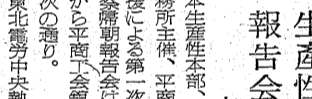 生産性
報告会
本生産性本部、
務所主催、平商
後による第一次
察帰朝報告会は
から平商工会館
次の通り。
東北電労中央執